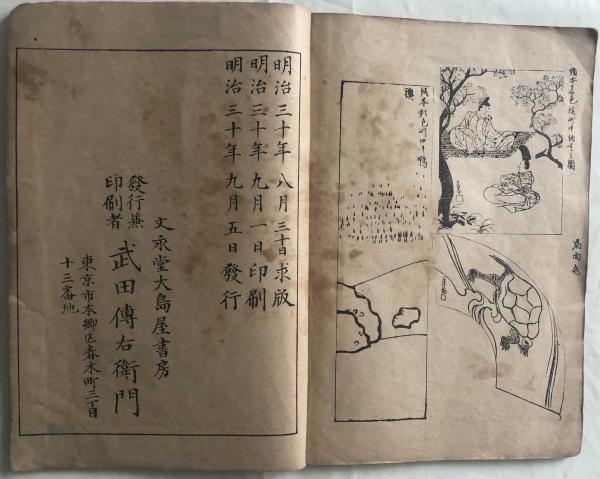 扇面
明治三十年八月三十日求版
明治三十年九月一日印刷
明治三十年九月五日發行
文永堂大島屋書房
發行兼
印刷者
武田傳右衛門
東京市本郷区春木町三丁目
十三番地